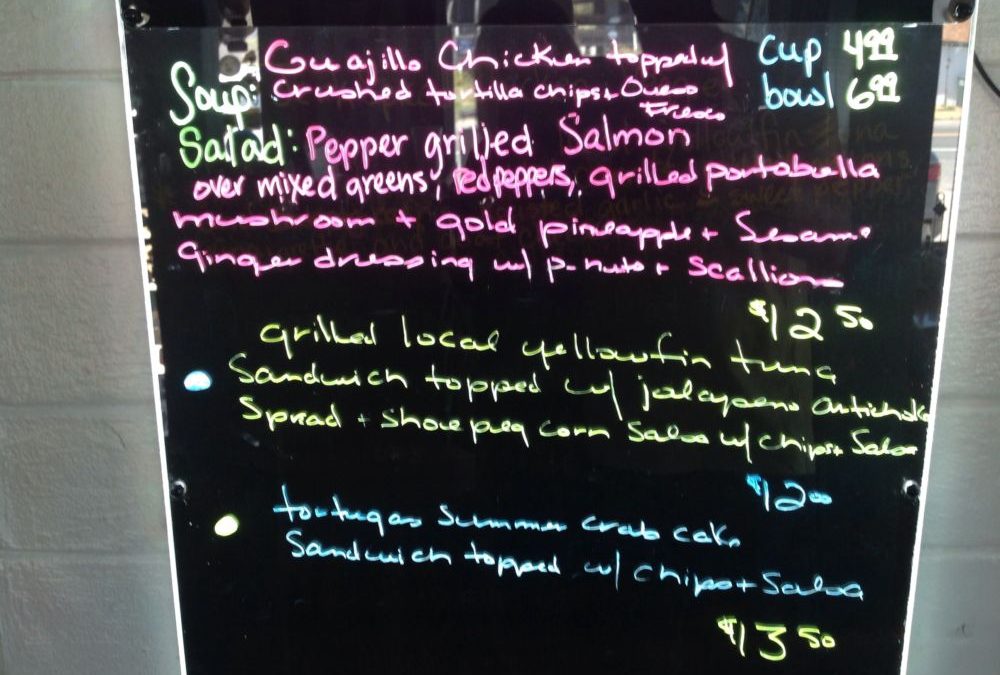 Guajillo Chicken topped w/ cup 4.99
Soup: crushed tortilla chips + Queso bowl 6.99
Fresco
Salad: Pepper grilled Salmon
over mixed greens, red peppers, grilled portabella
mushroom + gold pineapple + Sesame
ginger dressing w/ p-nuts + scallions
$12 50
grilled local yellowfin tuna
Sandwich topped w/ jalapeno artichoke
Spread + shoe peg corn Salsa w/ chips + Salsa
$12 00
tortugas summer crab cake
Sandwich topped w/ chips + Salsa
$13 50